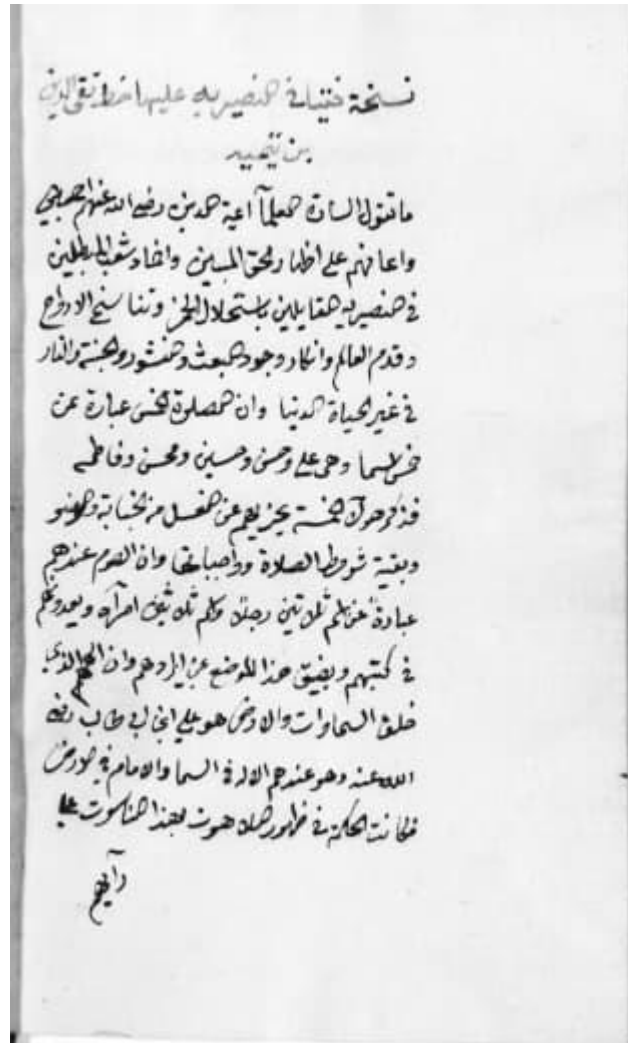 نسخة فتيا في النصيريه عليها خط تقي الدين
بن تيميه
ما تقول السادة العلمآ أئمة الدين رضي الله عنهم اجمعين
واعانهم على اظهار الحق المبين واخماد شغب المبطلين
في النصيريه القايلين باستحلال الخمر وتناسخ الارواح
وقدم العالم وانكار وجود البعث والنشور والجنة والنار
في غير الحياة الدنيا وان الصلوة الخمس عبارة عن
خمس اسما وهي علي وحسن وحسين ومحسن وفاطمه
فذكر هولآء الخمسة يجزيهم عن الغسل من الجنابة والوضو
وبقية شروط الصلاة وواجباتها وان الصوم عندهم
عبارة عن اسم ثلاثين رجلا واسم ثلاثين امرآة ويعدونهم
في كتبهم ويضيق هذا الموضع عن ايرادهم وان الههم الذي
خلق السماوات والارض هو علي ابن ابي طالب رضي
الله عنه وهو عندهم الاله في السما والامام في الارض
فكانت الحكمة في ظهور اللاهوت بهذا الناسوت على
رآيهم